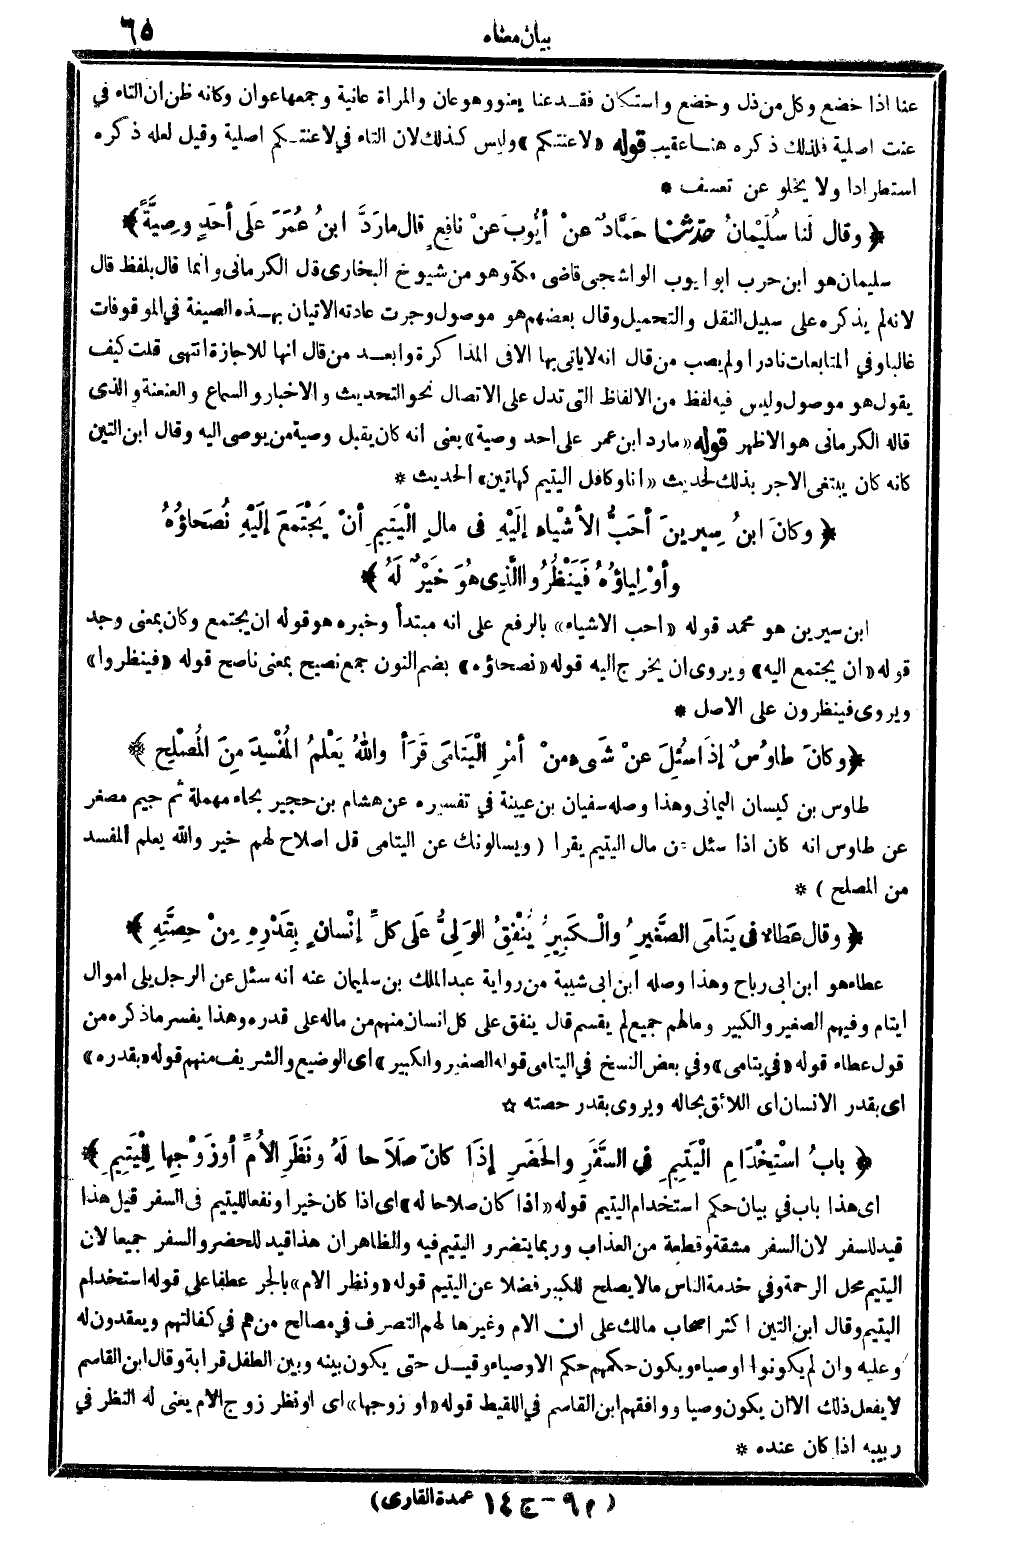 بيان معناه
٦٥
عنا اذا خضع وكل من ذل وخضع واستكان فقد عنا يعنو وهو عان والمراة عانية وجمعها عوان وكانه ظن ان التاء في
عنت اصلية فلذلك ذكره هنا عقيب قوله «لاعنتكم» وليس كذلك لان التاء في لاعنتكم اصلية وقيل لعله ذكره
استطرادا ولا يخلو عن تعسف *
﴿ وقال لَنا سُلَيْمانُ حَدَّثنا حَمَّادٌ عنْ أيُّوبَ عَنْ نافِعٍ قال مارَدَّ ابنُ عُمَرَ عَلَى أحَدٍ وصِيَّةً ﴾
سليمان هو ابن حرب ابو ايوب الواشجى قاضى مكة وهو من شيوخ البخارى قل الكرمانى وانما قال بلفظ قال
لانه لم يذكره على سبيل النقل والتحميل وقال بعضهم هو موصول وجرت عادته الاتيان بهذه الصيغة في الموقوفات
غالبا وفي المتابعات نادرا ولم يصب من قال انه لاياتى بها الا فى المذاكرة وابعد من قال انها للاجازة انتهى قلت كيف
يقول هو موصول وليس فيه لفظ من الالفاظ التى تدل على الاتصال نحو التحديث والاخبار والسماع والعنعنة والذى
قاله الكرمانى هو الاظهر قوله «مارد ابن عمر على احد وصية» يعنى انه كان يقبل وصية من يوصى اليه وقال ابن التين
كانه كان يبتغى الاجر بذلك لحديث «انا وكافل اليتيم كهاتين» الحديث *
﴿ وكانَ ابنُ سِيرينَ أحَبُّ الأشْياءِ إلَيْهِ فى مالِ الْيَتِيمِ أنْ يَجْتَمِعَ إلَيْهِ نُصَحاؤُهُ
وأوْلِياؤُهُ فَيَنْظُرُوا الَّذِى هُوَ خَيْرٌ لَهُ ﴾
ابن سيرين هو محمد قوله «احب الاشياء» بالرفع على انه مبتدأ وخبره هو قوله ان يجتمع وكان بمعنى وجد
قوله «ان يجتمع اليه» ويروى ان يخرج اليه قوله «نصحاؤه» بضم النون جمع نصيح بمعنى ناصح قوله «فينظروا»
ويروى فينظرون على الاصل *
﴿ وكانَ طاوُسٌ إذَا سُئِلَ عنْ شَىءٍ منْ أمْرِ الْيَتَامَى قَرَأَ واللهُ يَعْلَمُ المُفْسِدَ مِنَ المُصْلِحِ ﴾
طاوس بن كيسان اليمانى وهذا وصله سفيان بن عيينة في تفسيره عن هشام بن حجير بحاء مهملة ثم جيم مصغر
عن طاوس انه كان اذا سئل عن مال اليتيم يقرا ( ويسالونك عن اليتامى قل اصلاح لهم خير والله يعلم المفسد
من المصلح ) *
﴿ وقال عَطاءٌ فى يَتَامَى الصَّغِيرِ والْكَبِيرِ يُنْفِقُ الوَلِيُّ عَلَى كلِّ إنْسانٍ بِقَدْرِهِ مِنْ حِصَّتِهِ ﴾
عطاء هو ابن ابى رباح وهذا وصله ابن ابى شيبة من رواية عبدالملك بن سليمان عنه انه سئل عن الرجل يلى اموال
ايتام وفيهم الصغير والكبير ومالهم جميع لم يقسم قال ينفق على كل انسان منهم من ماله على قدره وهذا يفسر ماذكره من
قول عطاء قوله «في يتامى» وفي بعض النسخ في اليتامى قوله الصغير والكبير» اى الوضيع والشريف منهم قوله «بقدره»
اى بقدر الانسان اى اللائق بحاله ويروى بقدر حصته ☆
﴿ بابُ اسْتِخْدَامِ الْيَتِيمِ فِي السَّفَرِ والحَضَرِ إذَا كانَ صَلَاحا لَهُ ونَظَرِ الأُمِّ أوزَوْجِها لِلْيَتِيمِ ﴾
اى هذا باب في بيان حكم استخدام اليتيم قوله «اذا كان صلاحا له» اى اذا كان خيرا ونفعا لليتيم فى السفر قيل هذا
قيد للسفر لان السفر مشقة وقطعة من العذاب وربما يتضرر اليتيم فيه والظاهر ان هذا قيد للحضر والسفر جميعا لان
اليتيم محل الرحمة وفي خدمة الناس مالا يصلح للكبير فضلا عن اليتيم قوله «ونظر الام» بالجر عطفا على قوله استخدام
اليتيم وقال ابن التين اكثر اصحاب مالك على ان الام وغيرها لهم التصرف في مصالح من هم في كفالتهم ويعقدون له
وعليه وان لم يكونوا اوصياء ويكون حكمهم حكم الاوصياء وقيل حتى يكون بينه وبين الطفل قرابة وقال ابن القاسم
لا يفعل ذلك الا ان يكون وصيا ووافقهم ابن القاسم في اللقيط قوله «او زوجها» اى او نظر زوج الام يعنى له النظر في
ربيبه اذا كان عنده *
( م ٩ - ج ١٤ عمدة القارى)